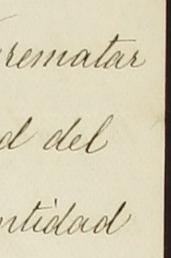 rematar
d del
ntidad